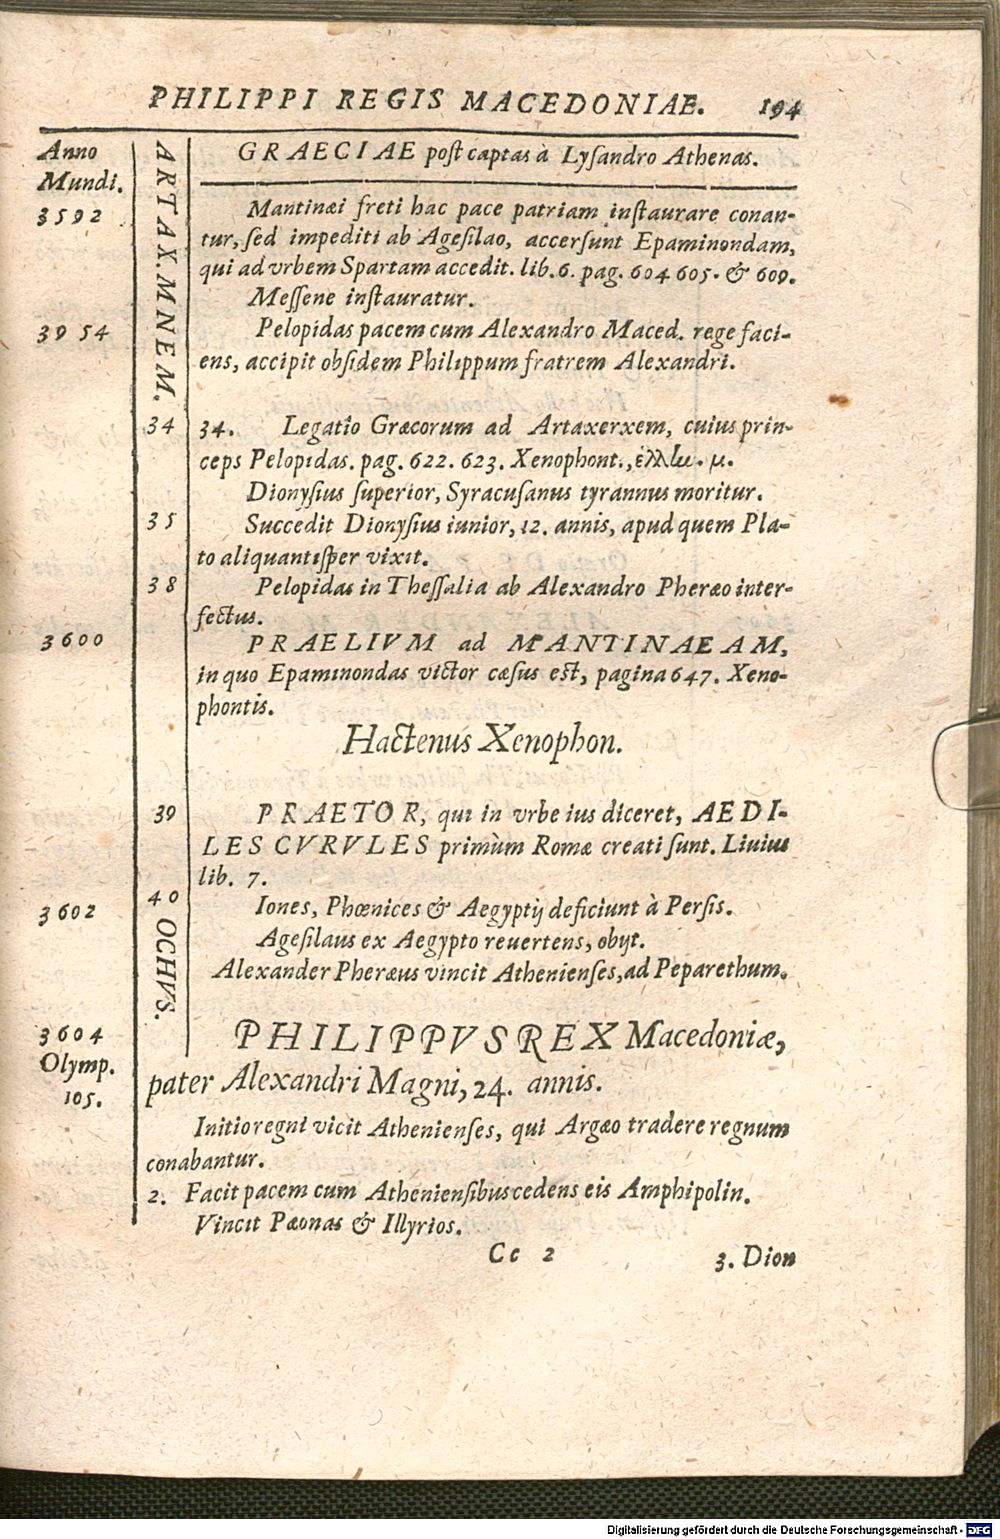 PHILIPPI REGIS MACEDONIAE. 194
Anno
Mundi.
ARTAX. MNEM.
GRAECIAE post captas à Lysandro Athenas.
3592
Mantinæi freti hac pace patriam instaurare conan-
tur, sed impediti ab Agesilao, accersunt Epaminondam,
qui ad vrbem Spartam accedit. lib. 6. pag. 604 605. & 609.
Messene instauratur.
3954 Pelopidas pacem cum Alexandro Maced. rege faci-
ens, accipit obsidem Philippum fratrem Alexandri.
34 34. Legatio Græcorum ad Artaxerxem, cuius prin-
ceps Pelopidas. pag. 622. 623. Xenophont.
Dionysius superior, Syracusanus tyrannus moritur.
35 Succedit Dionysius iunior, 12. annis, apud quem Pla-
to aliquantisper vixit.
38 Pelopidas in Thessalia ab Alexandro Pheræo inter-
fectus.
3600 PRAELIVM ad MANTINAEAM,
in quo Epaminondas victor cæsus est, pagina 647. Xeno-
phontis.
Hactenus Xenophon.
39 PRAETOR, qui in vrbe ius diceret, AEDI-
LES CVRVLES primùm Romæ creati sunt. Liuius
lib. 7.
3602 40 Iones, Phœnices & Aegyptij deficiunt à Persis.
OCHVS.
Agesilaus ex Aegypto reuertens, obijt.
Alexander Pheræus vincit Athenienses, ad Peparethum.
3604
Olymp.
105.
PHILIPPVS REX Macedoniæ,
pater Alexandri Magni, 24. annis.
Initio regni vicit Athenienses, qui Argæo tradere regnum
conabantur.
2. Facit pacem cum Atheniensibus cedens eis Amphipolin.
Vincit Pæonas & Illyrios.
Cc 2 3. Dion
Digitalisierung gefördert durch die Deutsche Forschungsgemeinschaft - DFG